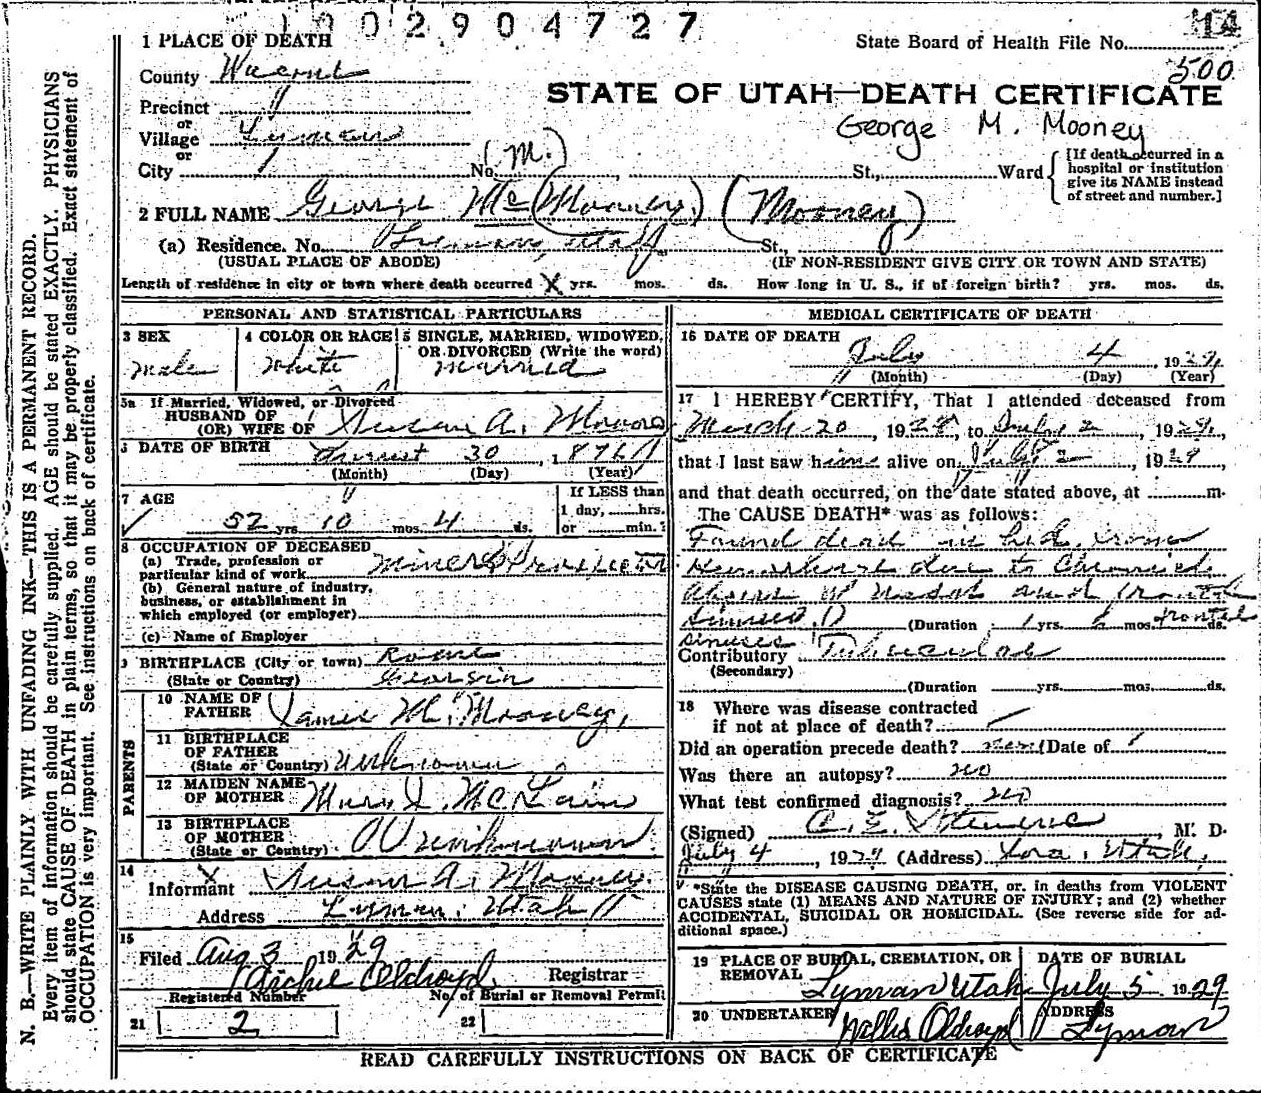 1002904727
14
1 PLACE OF DEATH
State Board of Health File No.
500
County
STATE OF UTAH—DEATH CERTIFICATE
Precinct "
or
George M. Mooney
Village Lyman
or
City
No. (M.) St., Ward
[If death occurred in a
hospital or institution
give its NAME instead
of street and number.]
2 FULL NAME George Mc (Mooney.) (Mooney)
(a) Residence. No. Lyman, Utah St.,
(USUAL PLACE OF ABODE) (IF NON-RESIDENT GIVE CITY OR TOWN AND STATE)
Length of residence in city or town where death occurred X yrs. mos. ds. How long in U. S., if of foreign birth? yrs. mos. ds.
PERSONAL AND STATISTICAL PARTICULARS
3 SEX
Male
4 COLOR OR RACE
White
5 SINGLE, MARRIED, WIDOWED,
OR DIVORCED (Write the word)
Married
5a If Married, Widowed, or Divorced
HUSBAND OF
(OR) WIFE OF Susan A.
6 DATE OF BIRTH August 30 1876
(Month) (Day) (Year)
7 AGE
52 yrs 10 mos 4 ds.
If LESS than
1 day, hrs.
or min.?
8 OCCUPATION OF DECEASED
(a) Trade, profession or
particular kind of work Miner & Prospector
(b) General nature of industry,
business, or establishment in
which employed (or employer)
(c) Name of Employer
9 BIRTHPLACE (City or town) Rome
(State or Country) Georgia
PARENTS
10 NAME OF
FATHER James M. Mooney,
11 BIRTHPLACE
OF FATHER
(State or Country) Unknown
12 MAIDEN NAME
OF MOTHER Mary J. McLain
13 BIRTHPLACE
OF MOTHER
(State or Country) Unknown
14
Informant Susan A. Mooney
Address Lyman, Utah
15
Filed Aug 3 1929
Archie Oldroyd Registrar
Registered Number
No. of Burial or Removal Permit
21 2
22
MEDICAL CERTIFICATE OF DEATH
16 DATE OF DEATH
July 4, 1929
(Month) (Day) (Year)
17 I HEREBY CERTIFY, That I attended deceased from
March 20, 1928, to July 2, 1929,
that I last saw him alive on July 2, 1929,
and that death occurred, on the date stated above, at m.
The CAUSE DEATH* was as follows:
Found dead in bed. from
Hemorhage due to Chronic
of nasal and frontal
sinuses. (Duration yrs. mos. ds.
frontal
sinuses
Contributory Tubercular
(Secondary)
(Duration yrs. mos. ds.
18 Where was disease contracted
if not at place of death?
Did an operation precede death? Date of
Was there an autopsy? no
What test confirmed diagnosis? no
(Signed) C. E., M. D.
July 4, 1929 (Address) Loa, Utah,
*State the DISEASE CAUSING DEATH, or. in deaths from VIOLENT
CAUSES state (1) MEANS AND NATURE OF INJURY; and (2) whether
ACCIDENTAL, SUICIDAL OR HOMICIDAL. (See reverse side for ad-
ditional space.)
19 PLACE OF BURIAL, CREMATION, OR
REMOVAL
Lyman Utah
DATE OF BURIAL
July 5 1929
20 UNDERTAKER
Oldroyd
ADDRESS
Lyman
READ CAREFULLY INSTRUCTIONS ON BACK OF CERTIFICATE
N. B.—WRITE PLAINLY WITH UNFADING INK—THIS IS A PERMANENT RECORD.
Every item of information should be carefully supplied. AGE should be stated EXACTLY. PHYSICIANS
should state CAUSE OF DEATH in plain terms, so that it may be properly classified. Exact statement of
OCCUPATION is very important. See instructions on back of certificate.